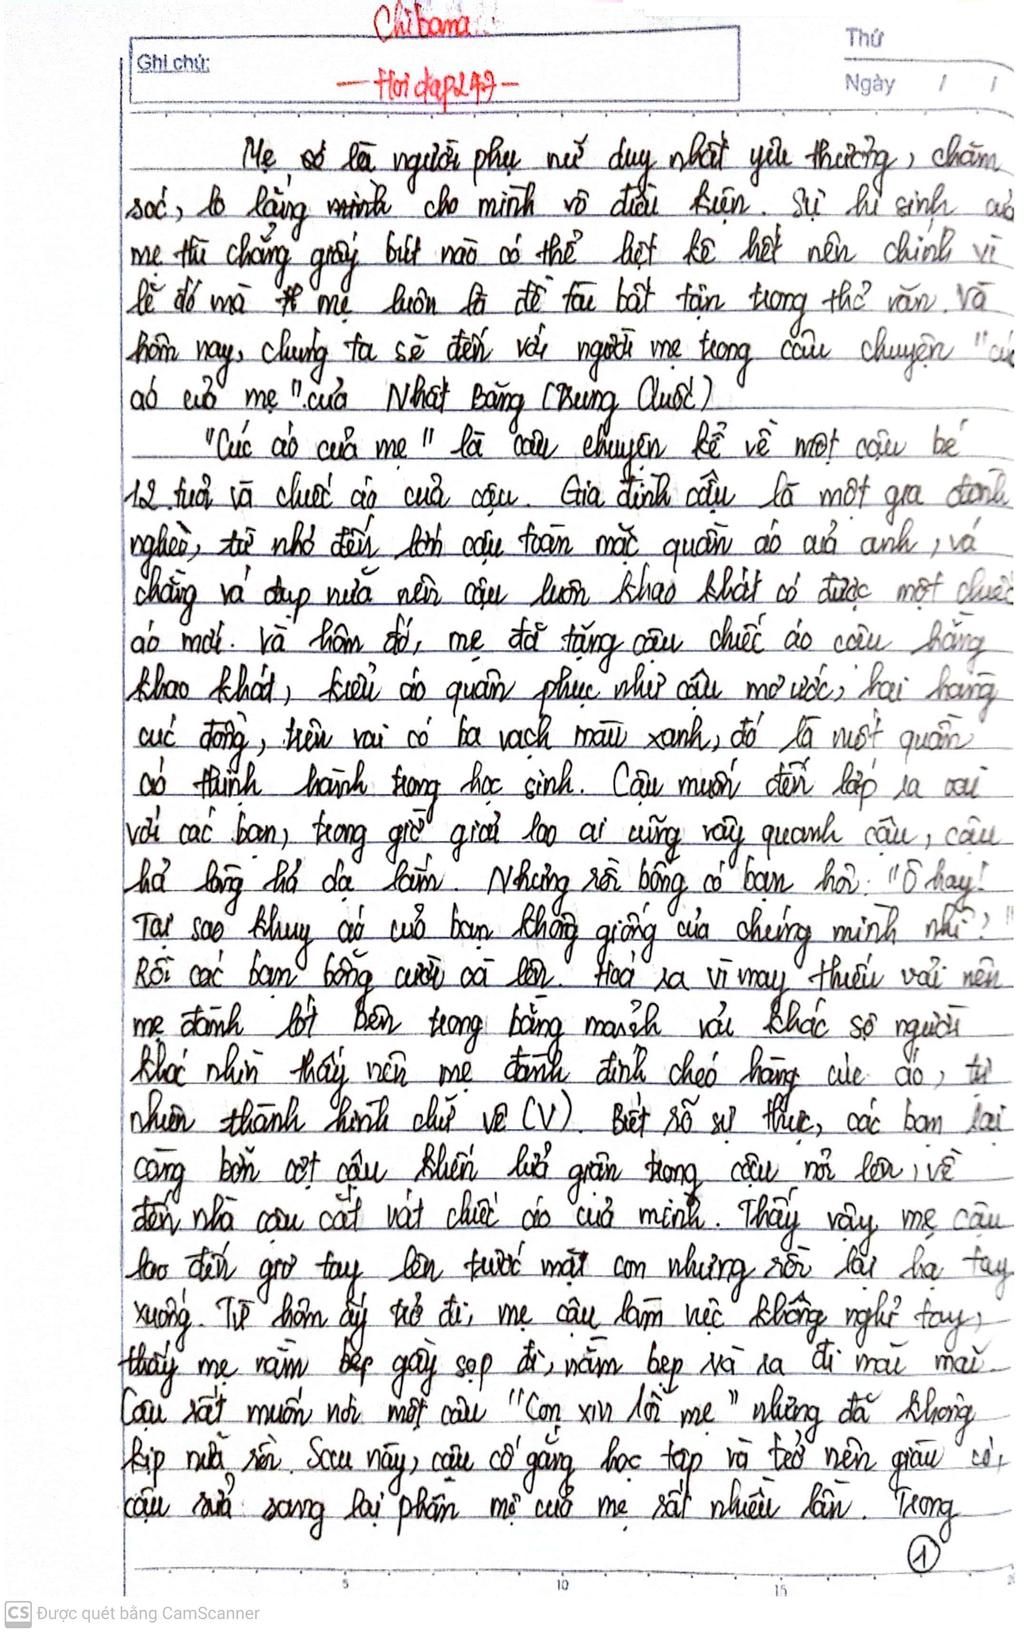 Chibana
Ghi chú:
- Hoidap247 -
Thứ
Ngày / /
Mẹ là người phụ nữ duy nhất yêu thương, chăm
sóc, lo lắng cho mình vô điều kiện. Sự hi sinh của
mẹ thì chẳng giấy bút nào có thể liệt kê hết nên chính vì
lẽ đó mà mẹ luôn là đề tài bất tận trong thơ văn. Và
hôm nay, chúng ta sẽ đến với người mẹ trong câu chuyện "cúc
áo của mẹ" của Nhất Băng (Trung Quốc)
"Cúc áo của mẹ" là câu chuyện kể về một cậu bé
12 tuổi và chiếc áo của cậu. Gia đình cậu là một gia đình
nghèo, từ nhỏ đến lớn cậu toàn mặc quần áo của anh, vá
chằng vá đụp nữa nên cậu luôn khao khát có được một chiếc
áo mới. Và hôm đó, mẹ đã tặng cậu chiếc áo cậu hằng
khao khát, kiểu áo quân phục như cậu mơ ước, hai hàng
cúc đồng, trên vai có ba vạch màu xanh, đó là mốt quần
áo thịnh hành trong học sinh. Cậu muốn đến lớp ra oai
với các bạn, trong giờ giải lao ai cũng vây quanh cậu, cậu
hả lòng hả dạ lắm. Nhưng rồi bỗng có bạn hỏi: "Ô hay!
Tại sao khuy áo của bạn không giống của chúng mình nhỉ?"
Rồi các bạn bỗng cười oà lên. Hoá ra vì may thiếu vải nên
mẹ đành lót bên trong bằng mảnh vải khác sợ người
khác nhìn thấy nên mẹ đành đính chéo hàng cúc áo, tự
nhiên thành hình chữ vê (V). Biết rõ sự thực, các bạn lại
càng bỡn cợt cậu khiến lửa giận trong cậu nổi lên, về
đến nhà cậu cắt vát chiếc áo của mình. Thấy vậy mẹ cậu
lao đến giơ tay lên trước mặt con nhưng rồi lại hạ tay
xuống. Từ hôm ấy trở đi, mẹ cậu làm việc không nghỉ tay,
thấy mẹ gầy sọp đi, nằm bẹp và ra đi mãi mãi.
Cậu rất muốn nói một câu "Con xin lỗi mẹ" nhưng đã không
kịp nữa rồi. Sau này, cậu cố gắng học tập và trở nên giàu có,
cậu sửa sang lại phần mộ của mẹ rất nhiều lần. Trong
1
5 10 15
CS Được quét bằng CamScanner